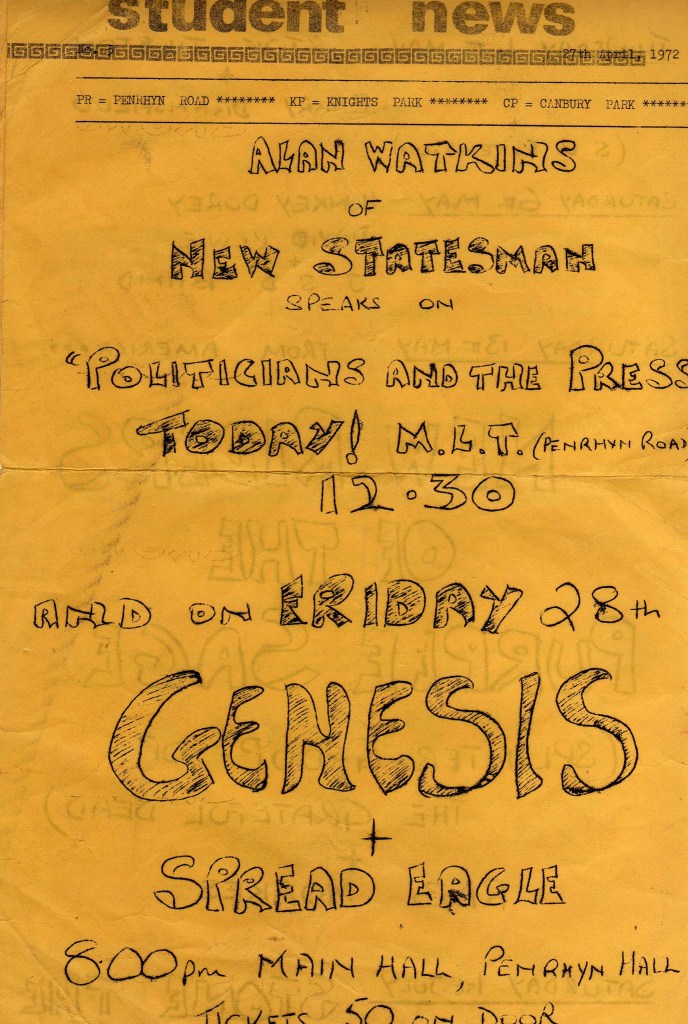 student news
27th April, 1972
PR = PENRHYN ROAD ******** KP = KNIGHTS PARK ******** CP = CANBURY PARK ******
ALAN WATKINS
OF
NEW STATESMAN
SPEAKS ON
"POLITICIANS AND THE PRESS
TODAY! M.L.T. (PENRHYN ROAD)
12.30
AND ON FRIDAY 28th
GENESIS
+
SPREAD EAGLE
8.00pm MAIN HALL, PENRHYN HALL
TICKETS 50 ON DOOR